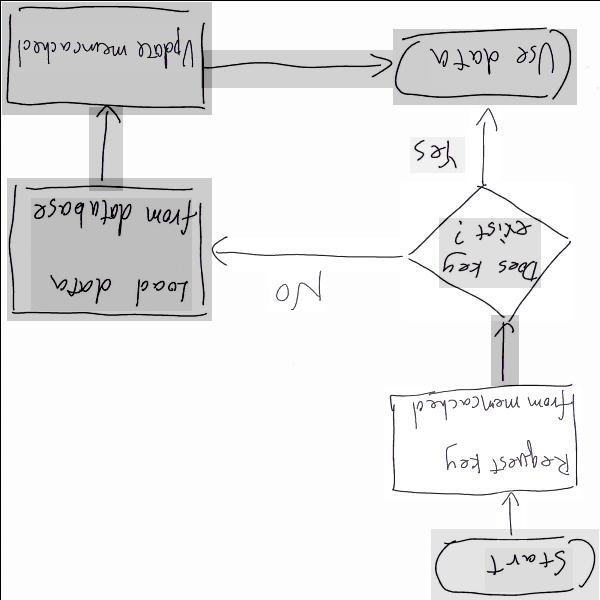 Start
Request key
from memcached
Does key
exist?
No
Yes
Load data
from database
Update memcached
Use data